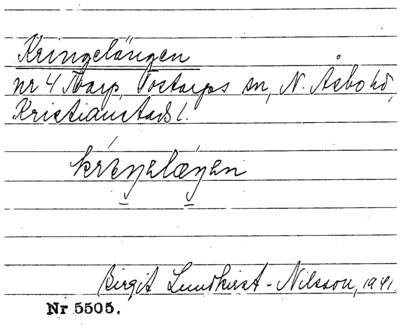 Kringelängen
nr 4 Tarp, Tostarps sn, N. Åsbo hd,
Kristianstads l.
kriŋəlæŋən
Birgit Lundkvist-Nilsson, 1941.
Nr 5505.